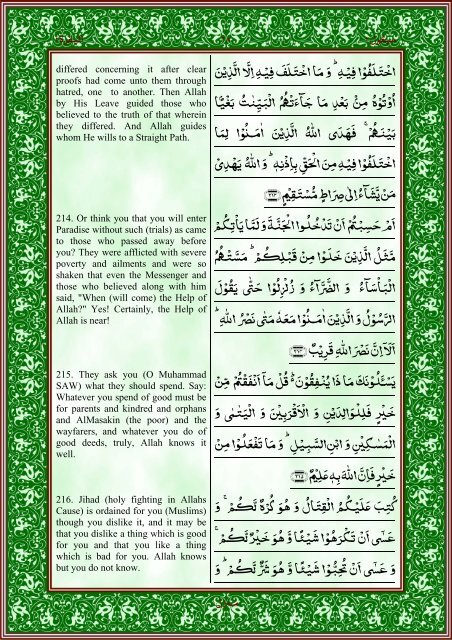 differed concerning it after clear
proofs had come unto them through
hatred, one to another. Then Allah
by His Leave guided those who
believed to the truth of that wherein
they differed. And Allah guides
whom He wills to a Straight Path.
214. Or think you that you will enter
Paradise without such (trials) as came
to those who passed away before
you? They were afflicted with severe
poverty and ailments and were so
shaken that even the Messenger and
those who believed along with him
said, "When (will come) the Help of
Allah?" Yes! Certainly, the Help of
Allah is near!
215. They ask you (O Muhammad
SAW) what they should spend. Say:
Whatever you spend of good must be
for parents and kindred and orphans
and AlMasakin (the poor) and the
wayfarers, and whatever you do of
good deeds, truly, Allah knows it
well.
216. Jihad (holy fighting in Allahs
Cause) is ordained for you (Muslims)
though you dislike it, and it may be
that you dislike a thing which is good
for you and that you like a thing
which is bad for you. Allah knows
but you do not know.
اخْتَلَفُوْا فِيْهِ ؕ وَ مَا اخْتَلَفَ فِيْهِ اِلَّا الَّذِيْنَ
اُوْتُوْهُ مِنْۢ بَعْدِ مَا جَآءَتْهُمُ الْبَيِّنٰتُ بَغْيًۢا
بَيْنَهُمْ ۚ فَهَدَى اللّٰهُ الَّذِيْنَ اٰمَنُوْا لِمَا
اخْتَلَفُوْا فِيْهِ مِنَ الْحَقِّ بِاِذْنِهٖ ؕ وَ اللّٰهُ يَهْدِيْ
مَنْ يَّشَآءُ اِلٰى صِرَاطٍ مُّسْتَقِيْمٍ ﴿۲۱۳﴾
اَمْ حَسِبْتُمْ اَنْ تَدْخُلُوا الْجَنَّةَ وَ لَمَّا يَاْتِكُمْ
مَّثَلُ الَّذِيْنَ خَلَوْا مِنْ قَبْلِكُمْ ؕ مَسَّتْهُمُ
الْبَاْسَآءُ وَ الضَّرَّآءُ وَ زُلْزِلُوْا حَتّٰى يَقُوْلَ
الرَّسُوْلُ وَ الَّذِيْنَ اٰمَنُوْا مَعَهٗ مَتٰى نَصْرُ اللّٰهِ ؕ
اَلَاۤ اِنَّ نَصْرَ اللّٰهِ قَرِيْبٌ ﴿۲۱۴﴾
يَسْـَٔلُوْنَكَ مَا ذَا يُنْفِقُوْنَ ؕ قُلْ مَاۤ اَنْفَقْتُمْ مِّنْ
خَيْرٍ فَلِلْوَالِدَيْنِ وَ الْاَقْرَبِيْنَ وَ الْيَتٰمٰى وَ
الْمَسٰكِيْنِ وَ ابْنِ السَّبِيْلِ ؕ وَ مَا تَفْعَلُوْا مِنْ
خَيْرٍ فَاِنَّ اللّٰهَ بِهٖ عَلِيْمٌ ﴿۲۱۵﴾
كُتِبَ عَلَيْكُمُ الْقِتَالُ وَ هُوَ كُرْهٌ لَّكُمْ ۚ وَ
عَسٰۤى اَنْ تَكْرَهُوْا شَيْـًٔا وَّ هُوَ خَيْرٌ لَّكُمْ ۚ
وَ عَسٰۤى اَنْ تُحِبُّوْا شَيْـًٔا وَّ هُوَ شَرٌّ لَّكُمْ ؕ وَ